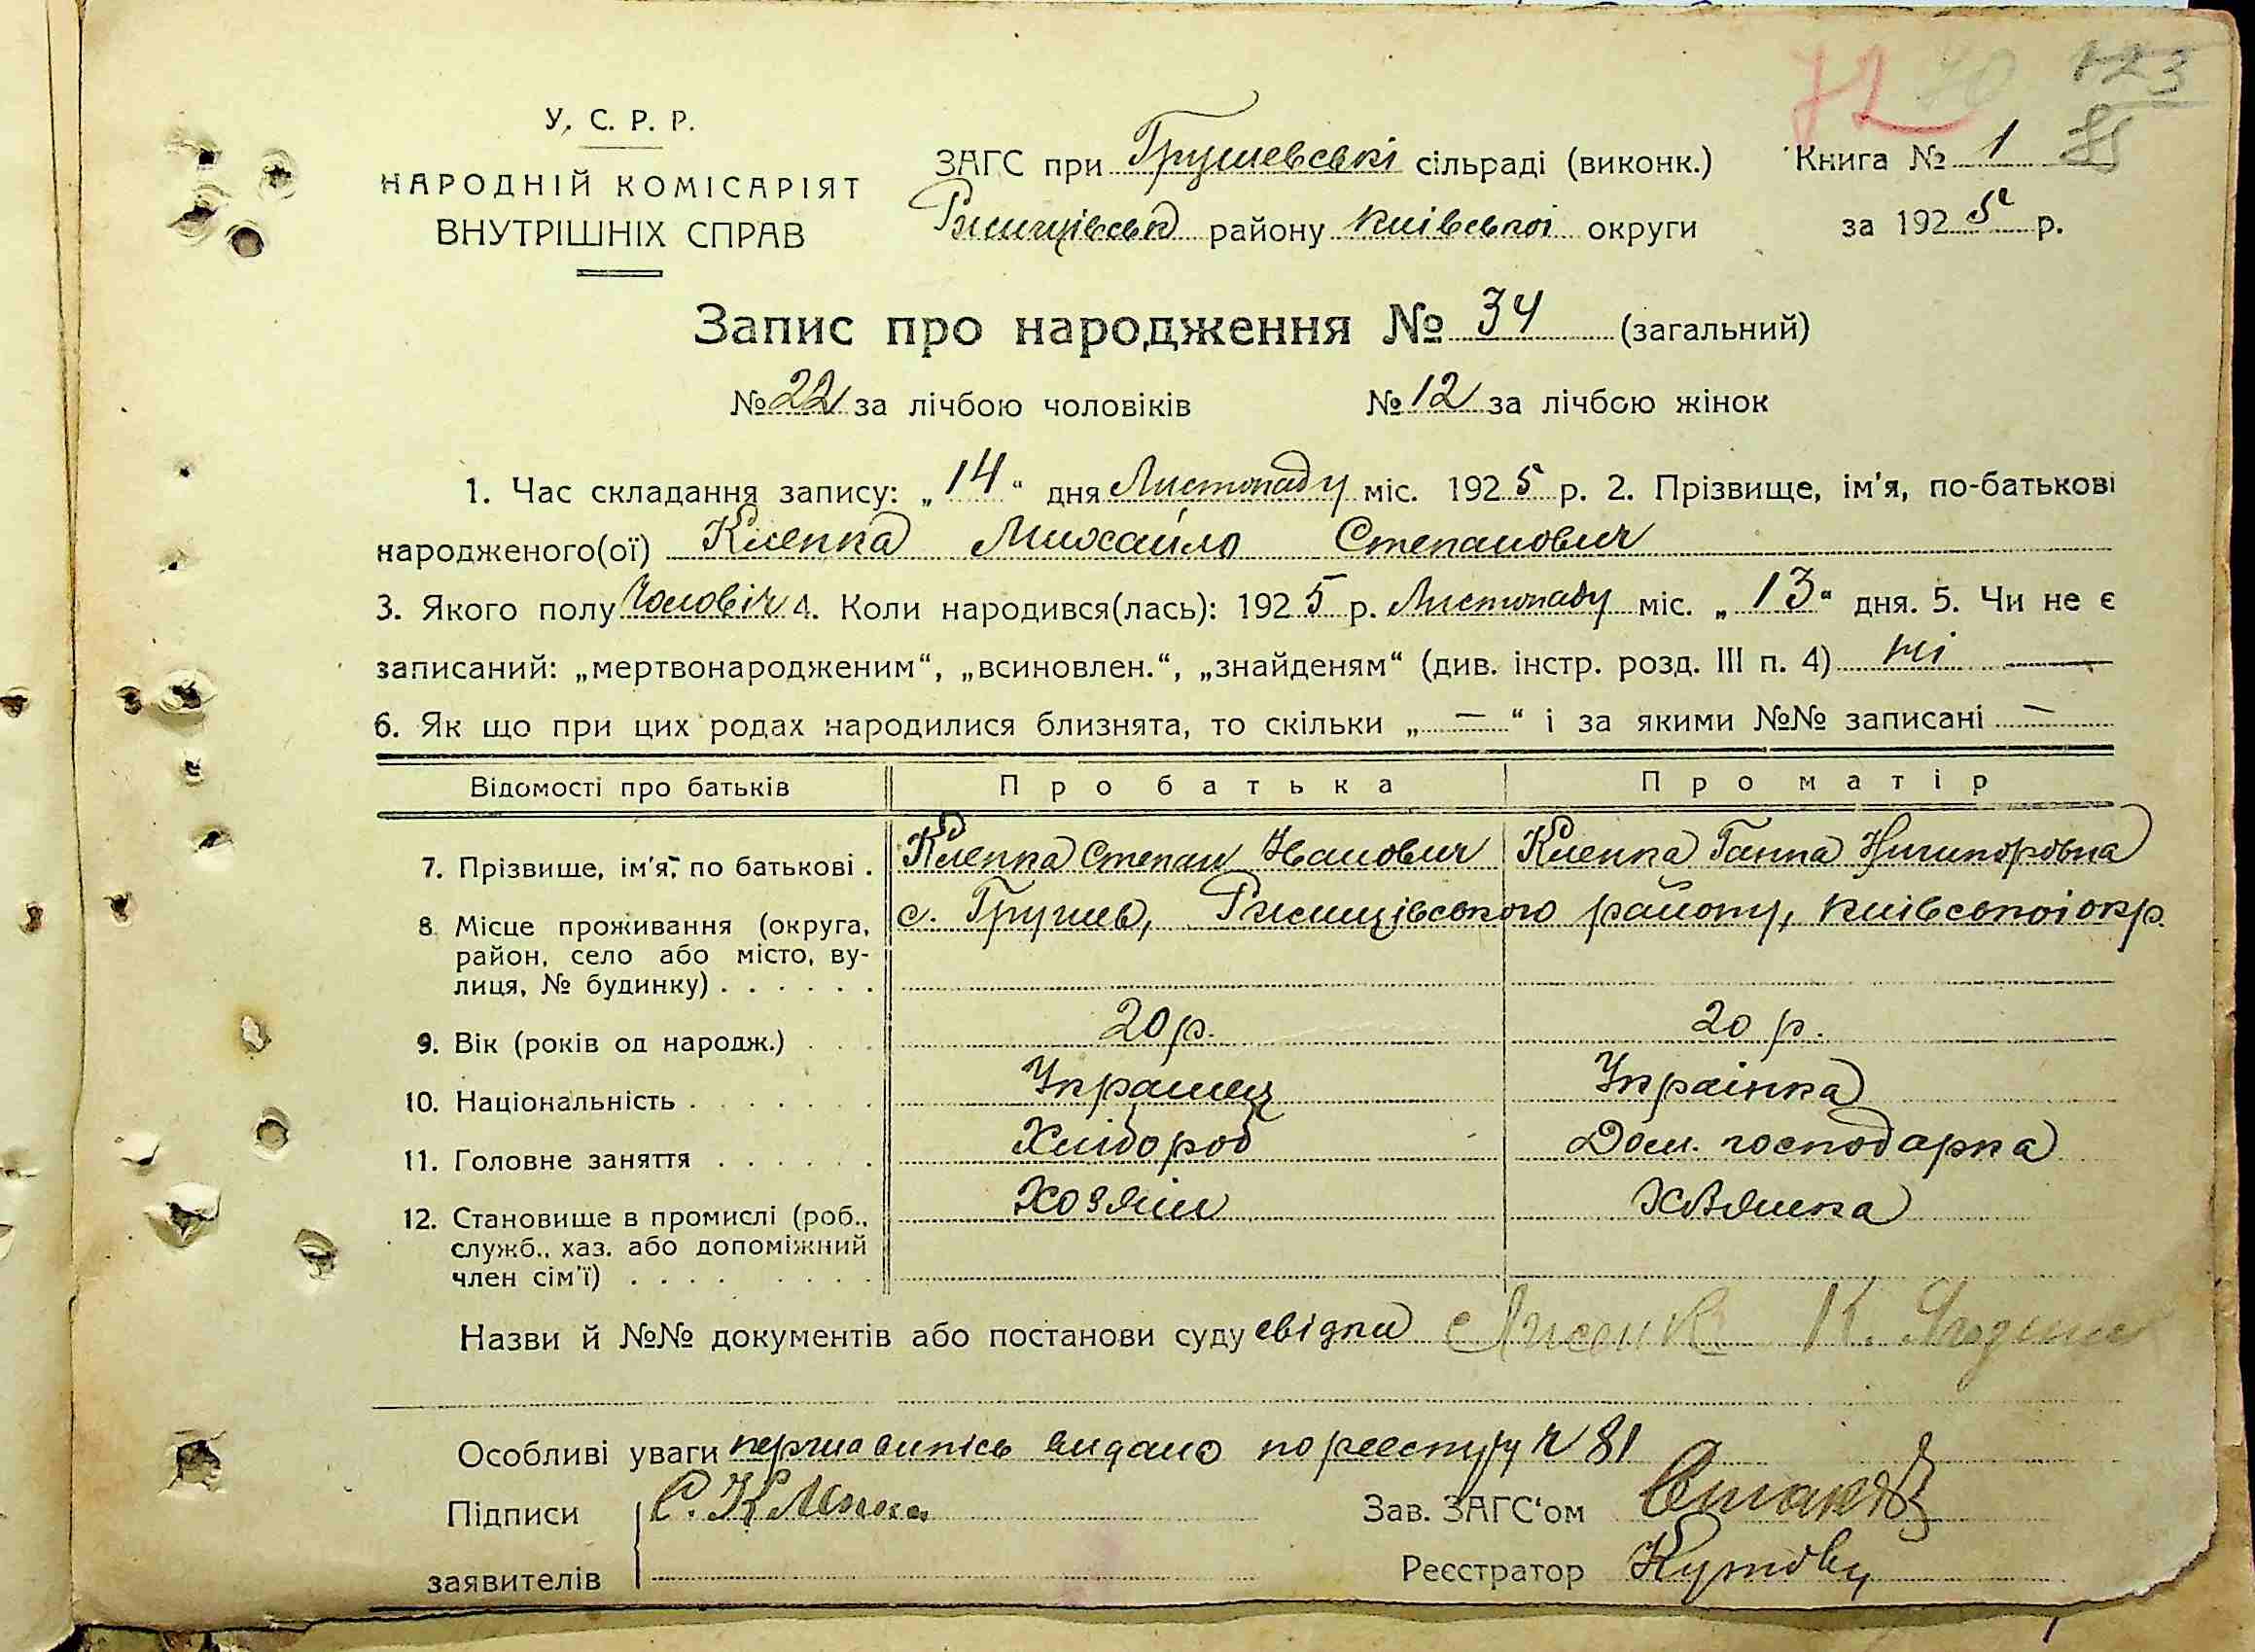 72 70 123
У. С. Р. Р.
НАРОДНІЙ КОМІСАРІЯТ
ВНУТРІШНІХ СПРАВ
ЗАГС при Грушевські сільраді (виконк.) Книга № 1
Ржищівськ району Київської округи за 1925 р.
Запис про народження № 34 (загальний)
№ 22 за лічбою чоловіків № 12 за лічбою жінок
1. Час складання запису: „14“ дня Листопаду міс. 1925 р. 2. Прізвище, ім'я, по-батькові
народженого(ої) Клепка Михайло Степанович
3. Якого полу Чоловіч 4. Коли народився(лась): 1925 р. Листопаду міс. „13“ дня. 5. Чи не є
записаний: „мертвонародженим“, „всиновлен.“, „знайденям“ (див. інстр. розд. III п. 4) ні —
6. Як що при цих родах народилися близнята, то скільки „—“ і за якими №№ записані —
Відомості про батьків Про батька Про матір
7. Прізвище, ім'я, по батькові . Клепка Степан Іванович Клепка Ганна Ничипоровна
8. Місце проживання (округа, с. Грушев, Ржищівського району, Київської окр.
район, село або місто, ву-
лиця, № будинку) . . . . . .
9. Вік (років од народж.) . . . 20 р. 20 р.
10. Національність . . . . . . . Украінец Украінка
11. Головне заняття . . . . . . Хлібороб Дом. господарка
12. Становище в промислі (роб., Хозяін Хазяйка
служб., хаз. або допоміжний
член сім'ї) . . . . . . . .
Назви й №№ документів або постанови суду свідки
Особливі уваги перша випісь видано по реестру № 81
Підписи С. Клепка Зав. ЗАГС'ом
заявителів Реєстратор Кутову